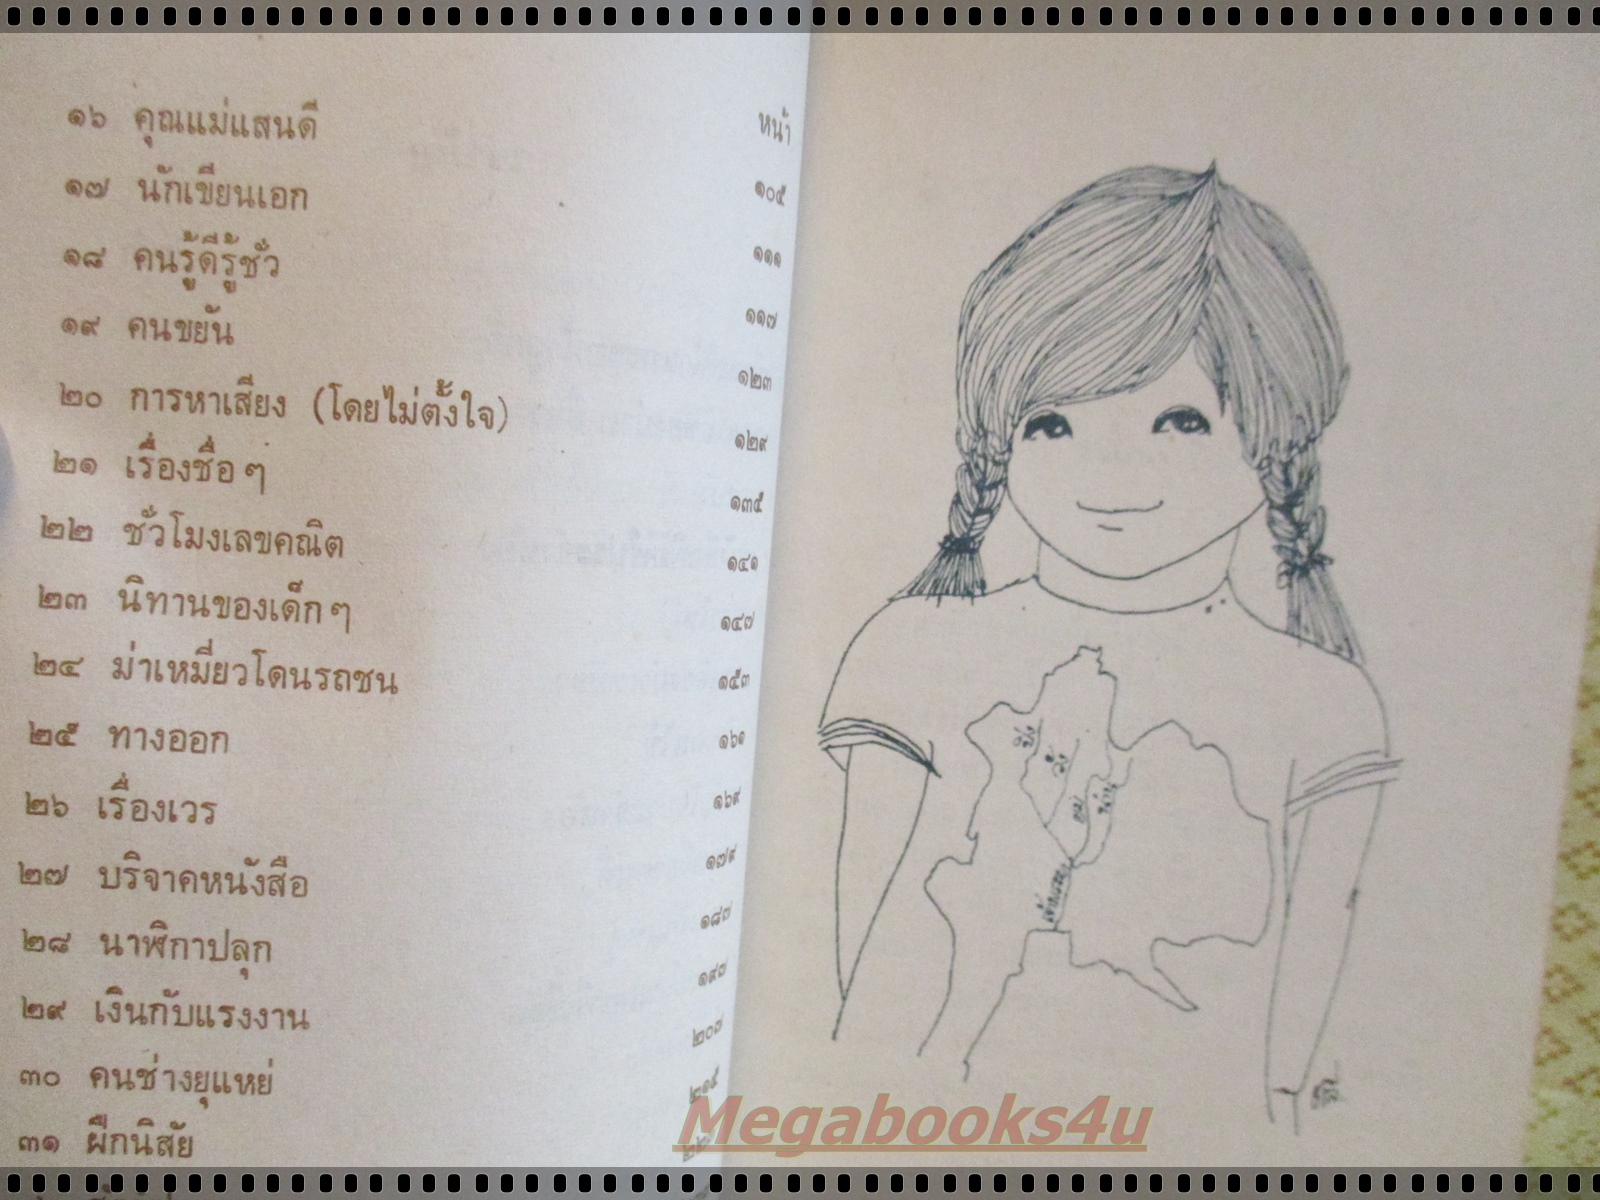 หน้า
๑๖ คุณแม่แสนดี ๑๐๕
๑๗ นักเขียนเอก ๑๑๑
๑๘ คนรู้ดีรู้ชั่ว ๑๑๗
๑๙ คนขยัน ๑๒๓
๒๐ การหาเสียง (โดยไม่ตั้งใจ) ๑๒๙
๒๑ เรื่องชื่อ ๆ ๑๓๕
๒๒ ชั่วโมงเลขคณิต ๑๔๑
๒๓ นิทานของเด็ก ๆ ๑๔๗
๒๔ ม่าเหมี่ยวโดนรถชน ๑๕๓
๒๕ ทางออก ๑๖๑
๒๖ เรื่องเวร ๑๖๙
๒๗ บริจาคหนังสือ ๑๗๙
๒๘ นาฬิกาปลุก ๑๘๗
๒๙ เงินกับแรงงาน ๑๙๗
๓๐ คนช่างยุแหย่ ๒๐๗
๓๑ ฝึกนิสัย ๒๑๕
ปิง
วัง
ยม
น่าน
เจ้าพระยา
Megabooks4u